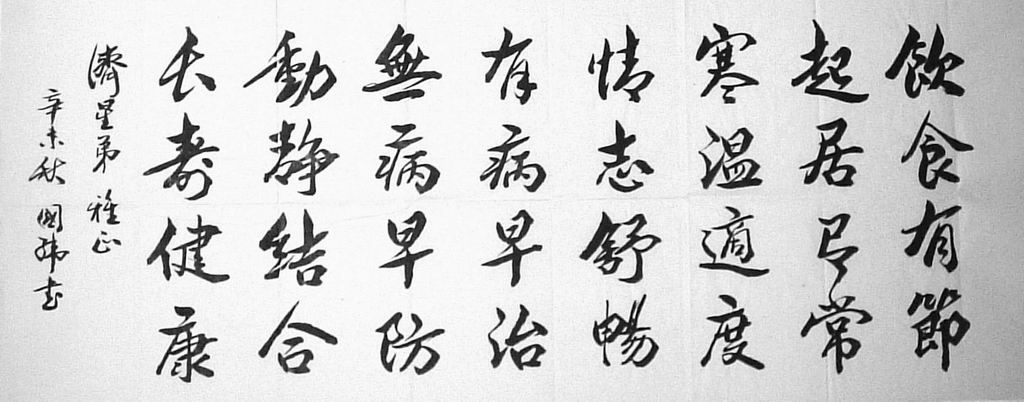 飲食有節
起居有常
寒温適度
情志舒暢
有病早治
無病早防
動静結合
長壽健康
濟星弟 雅正
辛未秋 國瑋書